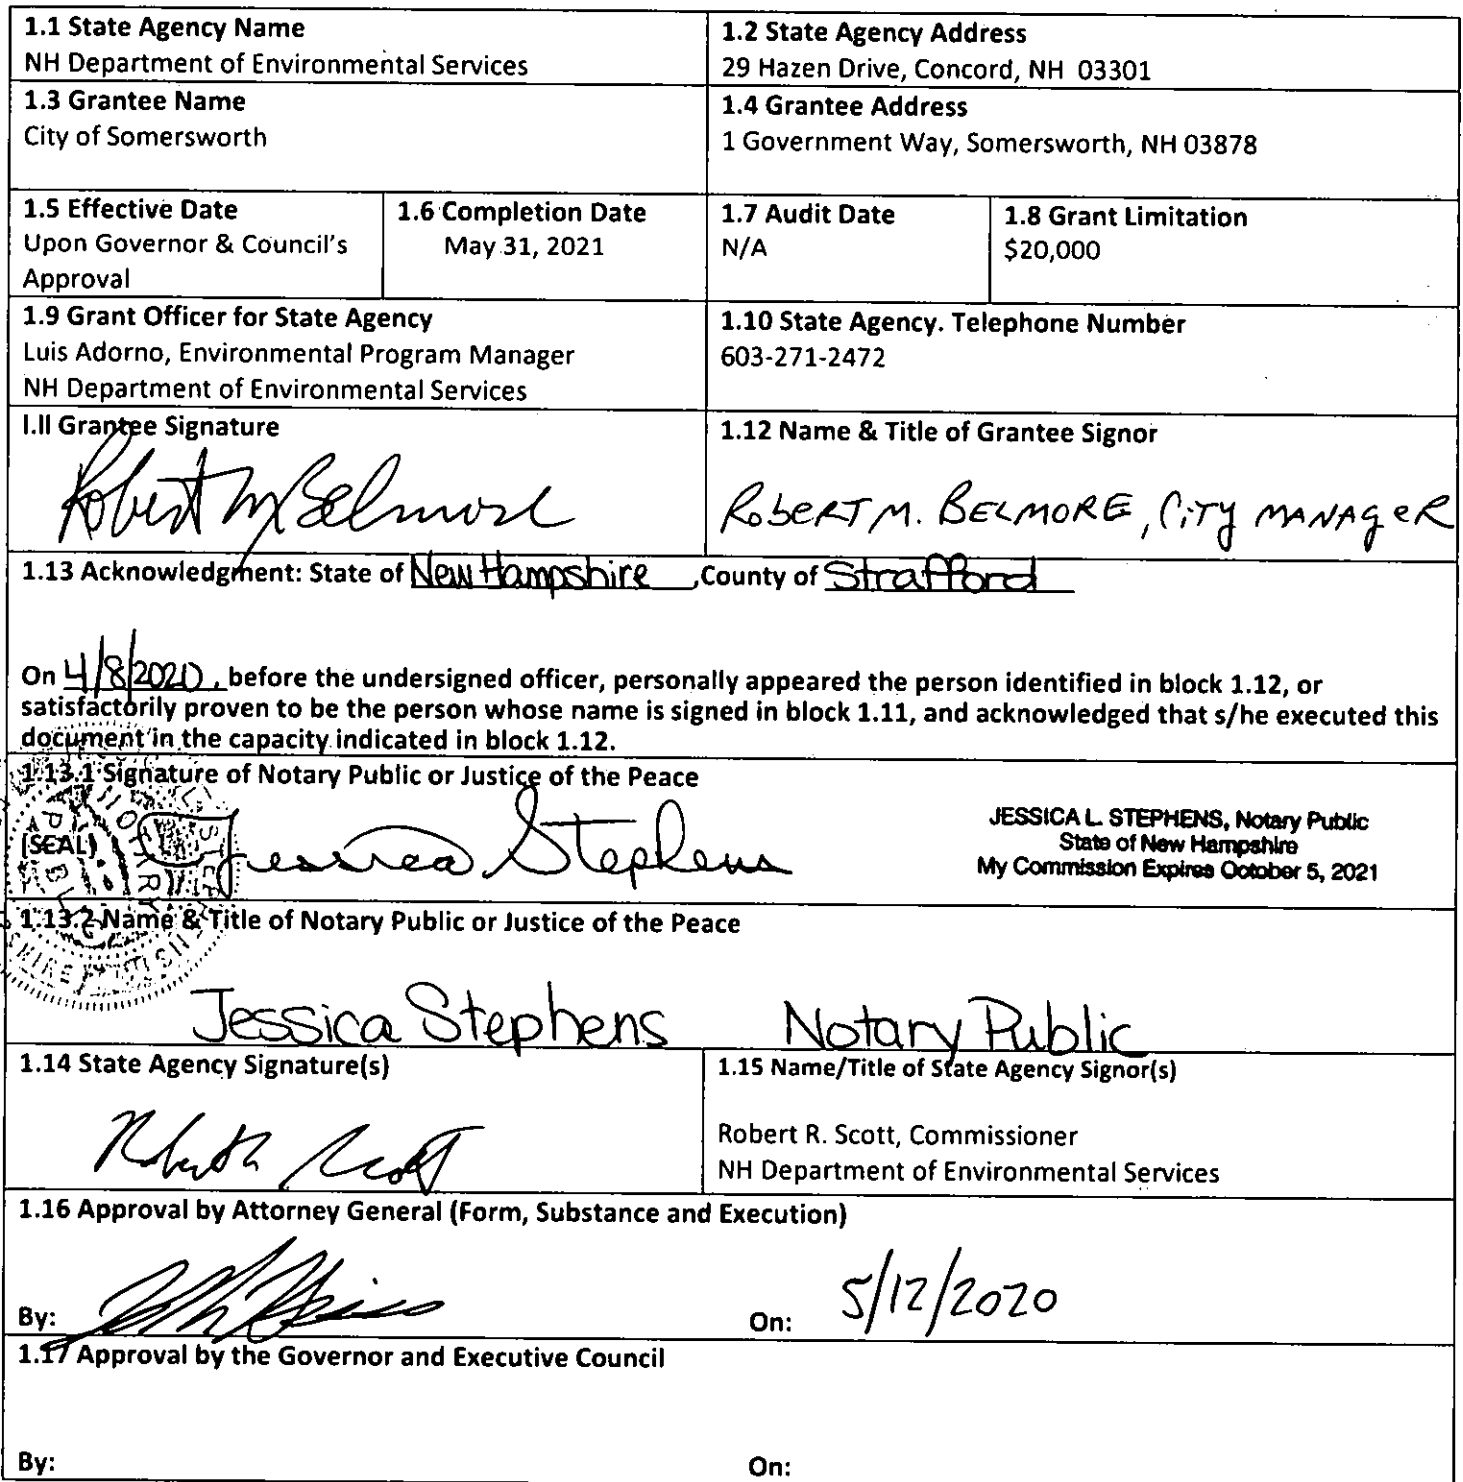 1.1 State Agency Name
NH Department of Environmental Services
1.2 State Agency Address
29 Hazen Drive, Concord, NH 03301
1.3 Grantee Name
City of Somersworth
1.4 Grantee Address
1 Government Way, Somersworth, NH 03878
1.5 Effective Date
Upon Governor & Council's
Approval
1.6 Completion Date
May 31, 2021
1.7 Audit Date
N/A
1.8 Grant Limitation
$20,000
1.9 Grant Officer for State Agency
Luis Adorno, Environmental Program Manager
NH Department of Environmental Services
1.10 State Agency. Telephone Number
603-271-2472
I.II Grantee Signature
Robert M Belmore
1.12 Name & Title of Grantee Signor
ROBERT M. BELMORE, CITY MANAGER
1.13 Acknowledgment: State of New Hampshire, County of Strafford
On 4/8/2020, before the undersigned officer, personally appeared the person identified in block 1.12, or
satisfactorily proven to be the person whose name is signed in block 1.11, and acknowledged that s/he executed this
document in the capacity indicated in block 1.12.
1.13.1 Signature of Notary Public or Justice of the Peace
(SEAL)
Jessica Stephens
JESSICA L. STEPHENS, Notary Public
State of New Hampshire
My Commission Expires October 5, 2021
1.13.2 Name & Title of Notary Public or Justice of the Peace
Jessica Stephens Notary Public
1.14 State Agency Signature(s)
1.15 Name/Title of State Agency Signor(s)
Robert R. Scott, Commissioner
NH Department of Environmental Services
1.16 Approval by Attorney General (Form, Substance and Execution)
By:
On: 5/12/2020
1.17 Approval by the Governor and Executive Council
By:
On: